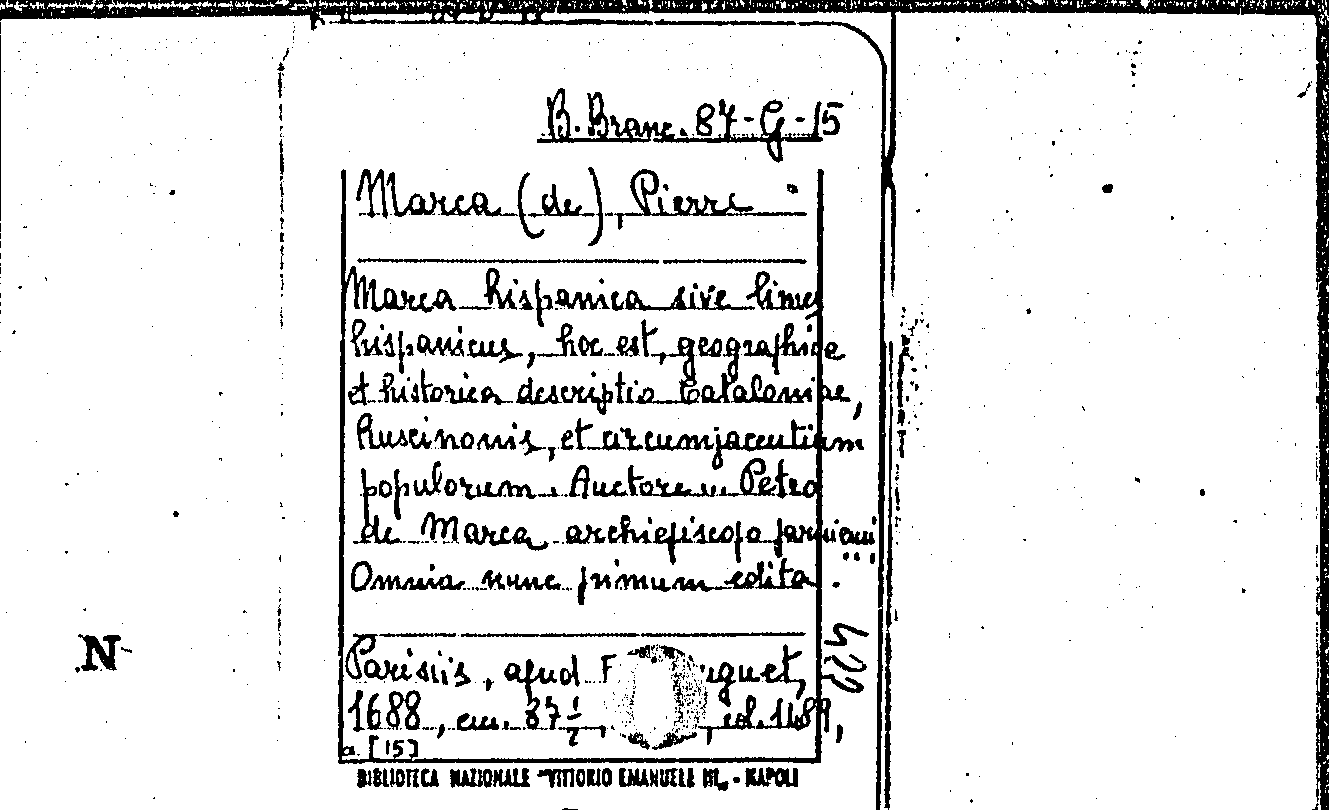 B. Branc. 87-G-15
Marca (de), Pierre
Marca hispanica sive limes
hispanicus, hoc est, geographica
et historica descriptio Cataloniae,
Ruscinonis, et circumjacentium
populorum. Auctore... Petro
de Marca archiepiscopo parisiensi
Omnia nunc primum edita.
Parisiis, apud F
1688, cm. 37 1/2, col. 1489,
a [15]
422
N
BIBLIOTECA NAZIONALE "VITTORIO EMANUELE III„ - NAPOLI